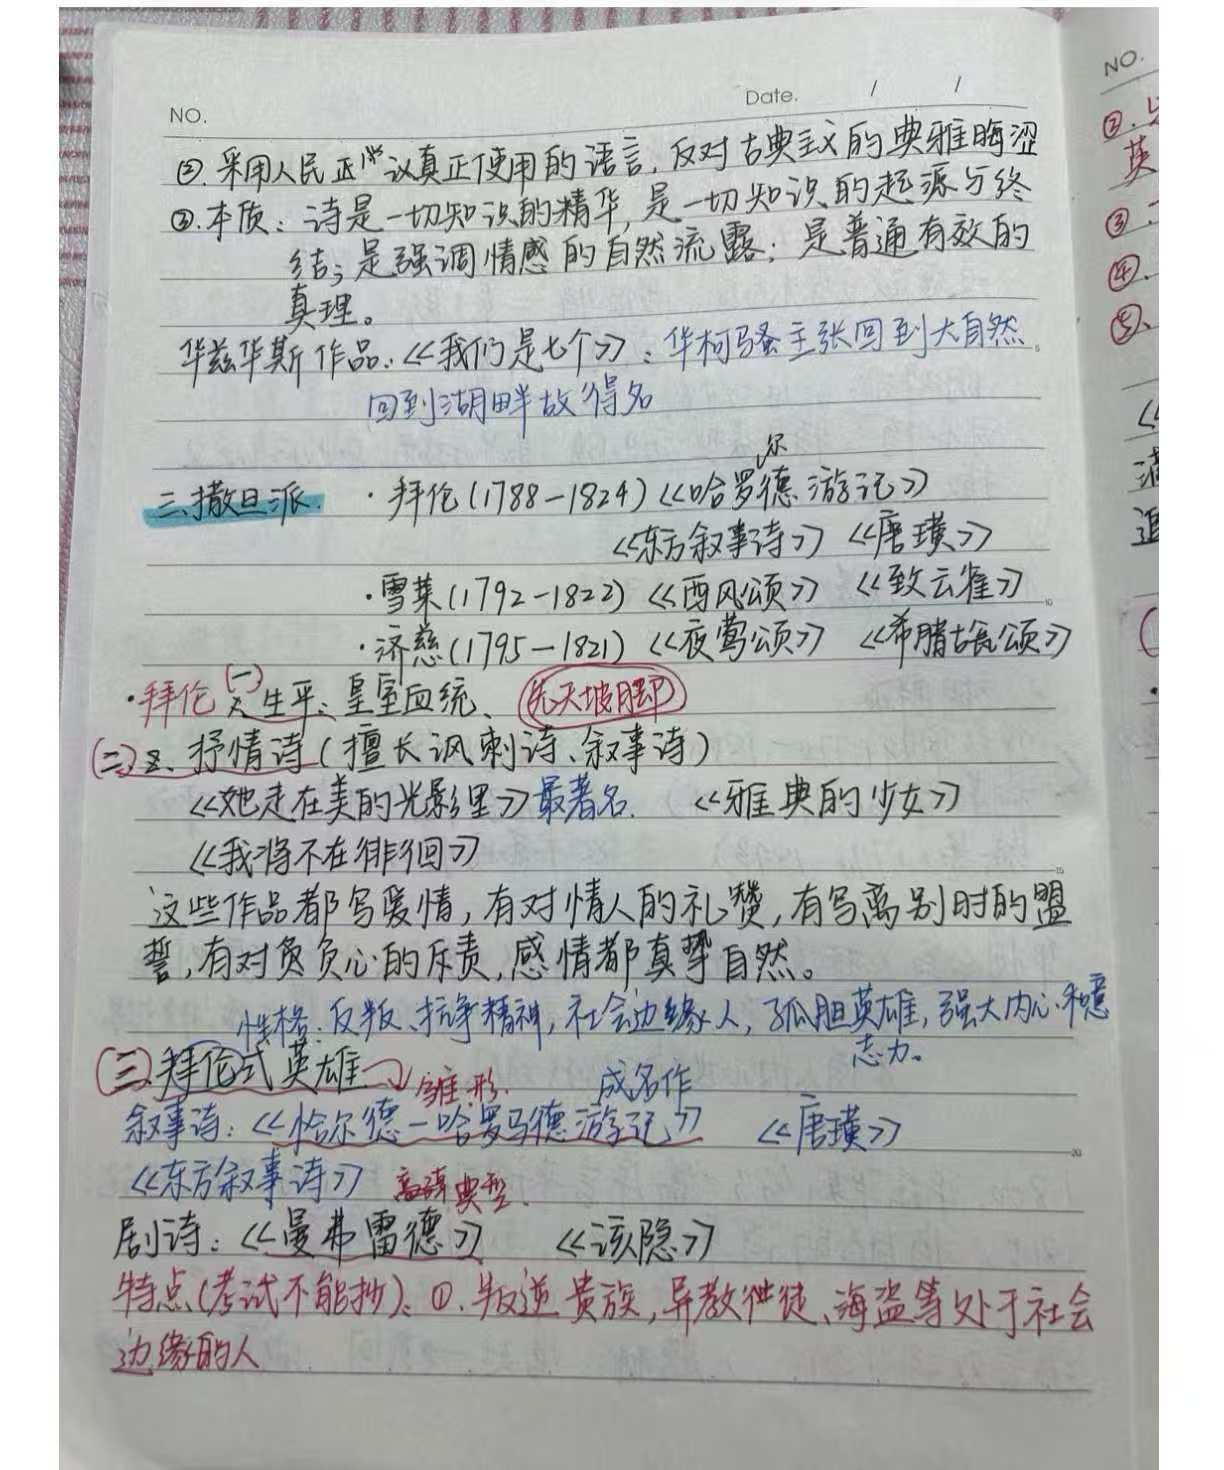 NO.
Date. / /
②. 采用人民正 议真正使用的语言, 反对古典主义的典雅晦涩
③. 本质: 诗是一切知识的精华, 是一切知识的起源与终
结; 是强调情感的自然流露; 是普通有效的
真理。
华兹华斯作品:《我们是七个》: 华柯骚主张回到大自然
回到湖畔故得名
三.撒旦派. ·拜伦(1788-1824)《哈罗尔德游记》
《东方叙事诗》 《唐璜》
·雪莱(1792-1822)《西风颂》 《致云雀》
·济慈(1795-1821)《夜莺颂》 《希腊古瓮颂》
·拜伦 (一) 生平: 皇室血统、先天坡脚
(二) 2、抒情诗(擅长讽刺诗、叙事诗)
《她走在美的光影里》最著名. 《雅典的少女》
《我将不在徘徊》
这些作品都写爱情, 有对情人的礼赞, 有写离别时的盟
誓, 有对负心的斥责, 感情都真挚自然。
性格: 反叛、抗争精神, 社会边缘人, 孤胆英雄, 强大内心和意
志力。
(三).拜伦式英雄
雏形. 成名作
叙事诗:《恰尔德-哈罗马德游记》 《唐璜》
《东方叙事诗》 典型.
剧诗:《曼弗雷德》 《该隐》
特点(考试不能抄): ①. 叛逆贵族, 异教徒、海盗等处于社会
边缘的人
NO.
②.
英
③
④.
⑤、